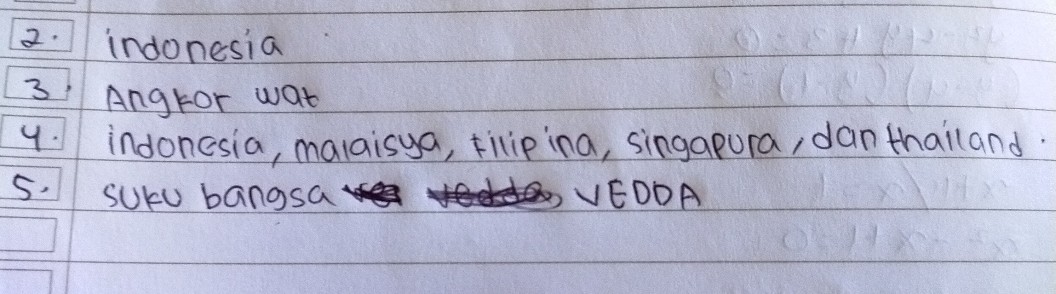 2. indonesia
3. Angkor wat
4. indonesia, malaisya, filipina, singapura, dan thailand.
5. suku bangsa VEDDA